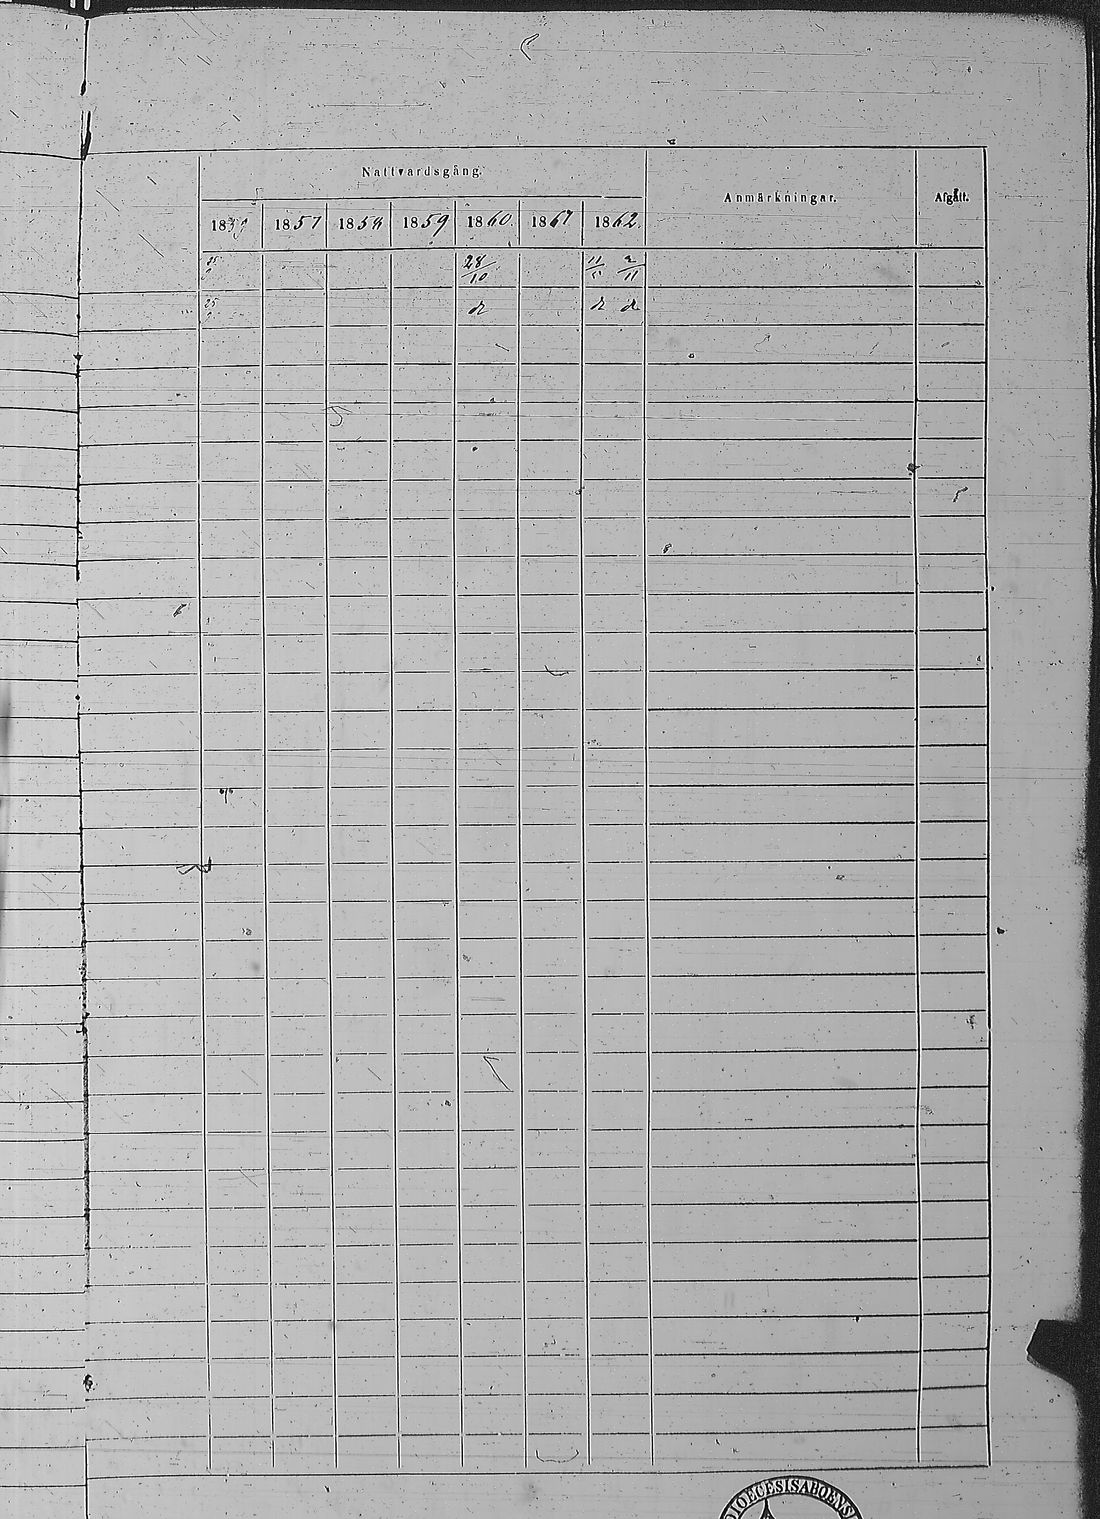 Nattvardsgång.
Anmärkningar.
Afgått.
1857 1858 1859 1860. 1861 1862.
28/10 11/5 2/11
25 d. d. d.
DIOECESISABOENS